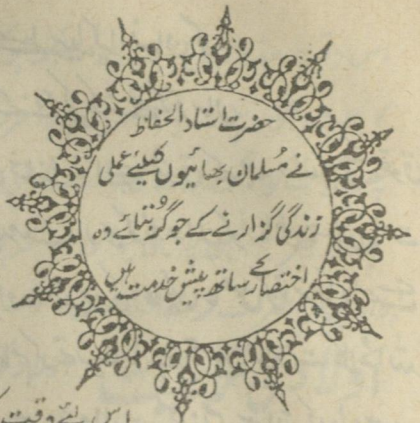 حضرت استاد الحفاظ
نے مُسلمان بھائیوں کیلئے عملی
زندگی گزارنے کے جو گُر بتائے وہ
اختصار کے ساتھ پیش خدمت ہیں
اس لئے وقت